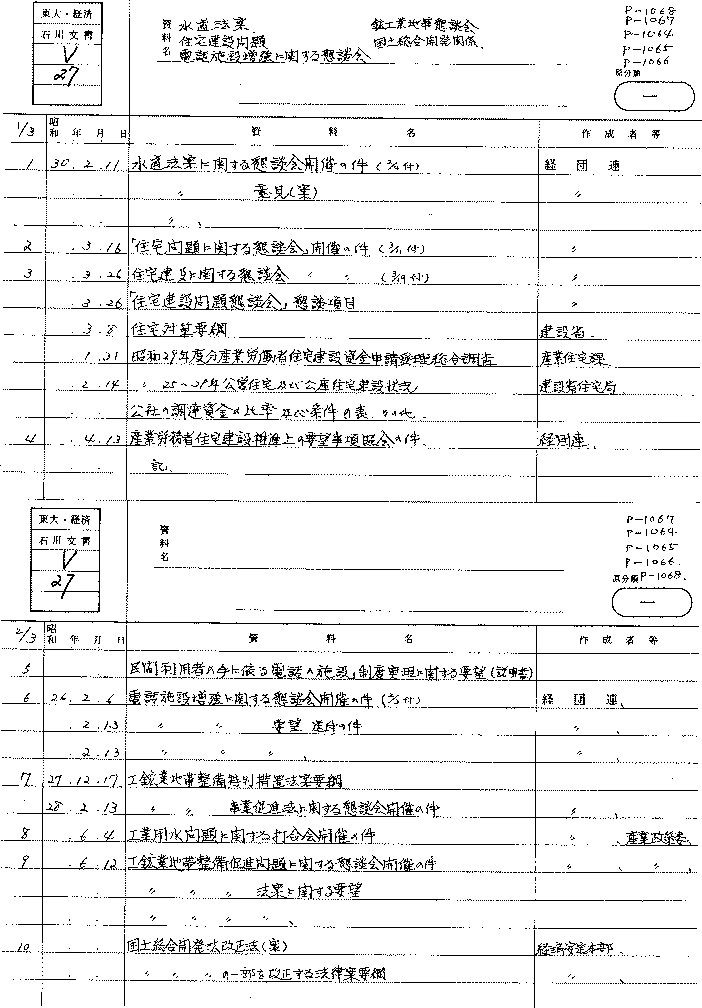 東大・経済
石川文書
V
27
資料名
水道法案 鉱工業地帯懇談会
住宅建設問題 国土総合開発関係、
電話施設増強に関する懇談会
P-1068
P-1067
P-1064
P-1065
P-1066
原分類
一
1/3 昭和 年 月 日 資料名 作成者等
1 30. 2. 11 水道法案に関する懇談会開催の件 経団連
〃 意見(案) 〃
〃 、
2 . 3. 16 「住宅問題に関する懇談会」開催の件 〃
3 . 3. 26 住宅建設に関する懇談会 〃 〃 〃
. 3. 26 「住宅建設問題懇談会」懇談項目 〃
. 3. 8 住宅対策要綱 建設省
. 1. 31 昭和29年度分産業労働者住宅建設資金申請受理総合調 産業住宅課
. 2. 14 〃 25〜29年公営住宅及び公庫住宅建設状況 建設省住宅局
公社の調達資金の比率及び条件の表 その他
4 . 4. 13 産業労務者住宅建設推進上の要望事項照会の件
記、
東大・経済
石川文書
V
27
資料名
P-1067
P-1064
P-1065
P-1066
原分類 P-1068
一
2/3 昭和 年 月 日 資料名 作成者等
5 民間利用者の手に依る電話の施設、制度整理に関する要望(説明書)
6 26. 2. 6 電話施設増強に関する懇談会開催の件 経団連、
. 2. 13 〃 〃 要望 送付の件 〃 、
. 2. 13 〃 〃 〃 、 〃 、
7 27. 12. 17 工鉱業地帯整備特別措置法案要綱
28. 2. 13 〃 〃 事業促進法に関する懇談会開催の件 〃 、
8 . 6. 4 工業用水問題に関する打合会開催の件 〃 、産業政策委、
9 . 6. 12 工鉱業地帯整備促進問題に関する懇談会開催の件 〃 、 〃 、
〃 〃 〃 法案に関する要望
〃 〃 〃 〃 、
10 国土総合開発法改正法(案) 経済安定本部
〃 〃 〃 の一部を改正する法律案要綱 〃 、